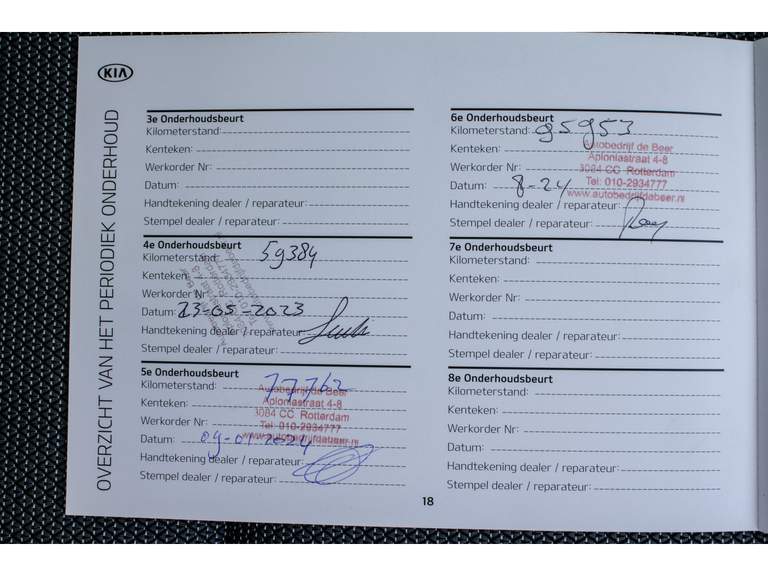 KIA
OVERZICHT VAN HET PERIODIEK ONDERHOUD
3e Onderhoudsbeurt
Kilometerstand:
Kenteken:
Werkorder Nr:
Datum:
Handtekening dealer / reparateur:
Stempel dealer / reparateur:
4e Onderhoudsbeurt
Kilometerstand: 59384
Kenteken:
Werkorder Nr:
Datum: 23-05-2023
Handtekening dealer / reparateur:
Stempel dealer / reparateur:
5e Onderhoudsbeurt
Kilometerstand: 77762
Autobedrijf de Beer
Kenteken: Aploniastraat 4-8
3084 CC Rotterdam
Werkorder Nr: Tel: 010-2934777
Datum: 09-01-2024 www.autobedrijfdabeer.nl
Handtekening dealer / reparateur:
Stempel dealer / reparateur:
6e Onderhoudsbeurt
Kilometerstand: 95953
Kenteken: Autobedrijf de Beer
Aploniastraat 4-8
Werkorder Nr: 3084 CC Rotterdam
Datum: 8-24 Tel: 010-2934777
www.autobedrijfdabeer.nl
Handtekening dealer / reparateur:
Stempel dealer / reparateur:
7e Onderhoudsbeurt
Kilometerstand:
Kenteken:
Werkorder Nr:
Datum:
Handtekening dealer / reparateur:
Stempel dealer / reparateur:
8e Onderhoudsbeurt
Kilometerstand:
Kenteken:
Werkorder Nr:
Datum:
Handtekening dealer / reparateur:
Stempel dealer / reparateur:
18